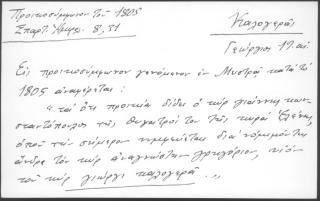 Προικοσύμφωνον τοῦ 1805
Σπαρτ. Ἡμερ. 8, 51
Καλογερᾶς
Γεώργιος 19. αἰ
Εἰς προικοσύμφωνον γενόμενον ἐν Μυστρᾷ κατὰ τὸ
1805 ἀναφέρεται:
« τὰ ὅτι προικιὰ δίδει ὁ κὺρ γιάννης κων-
σταντόπουλος τῆς θυγατρός του τῆς κυρὰ Ἑλένης,
ὁποῦ τὴν σήμερον νυμφεύεται διὰ νόμιμόν της
ἄνδρα τὸν κὺρ ἀναγνώστην γρηγόριον, υἱὸν
τοῦ κὺρ γιώργι καλογερᾶ...»